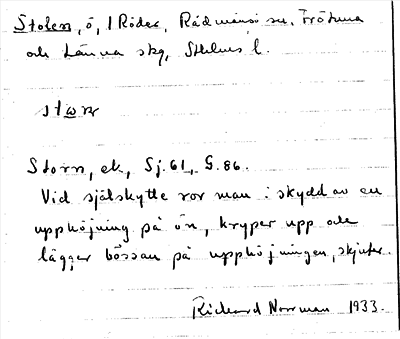 Stolen, ö, I Röder, Rådmansö sn. Frötuna
och Länna skg, Sthlms l.
Storn, ek, Sj. 61, G. 86.
Vid själskytte ror man i skydd av en
upphöjning på ön, kryper upp och
lägger bössan på upphöjningen, skjuter.
Rickard Norrman 1933.